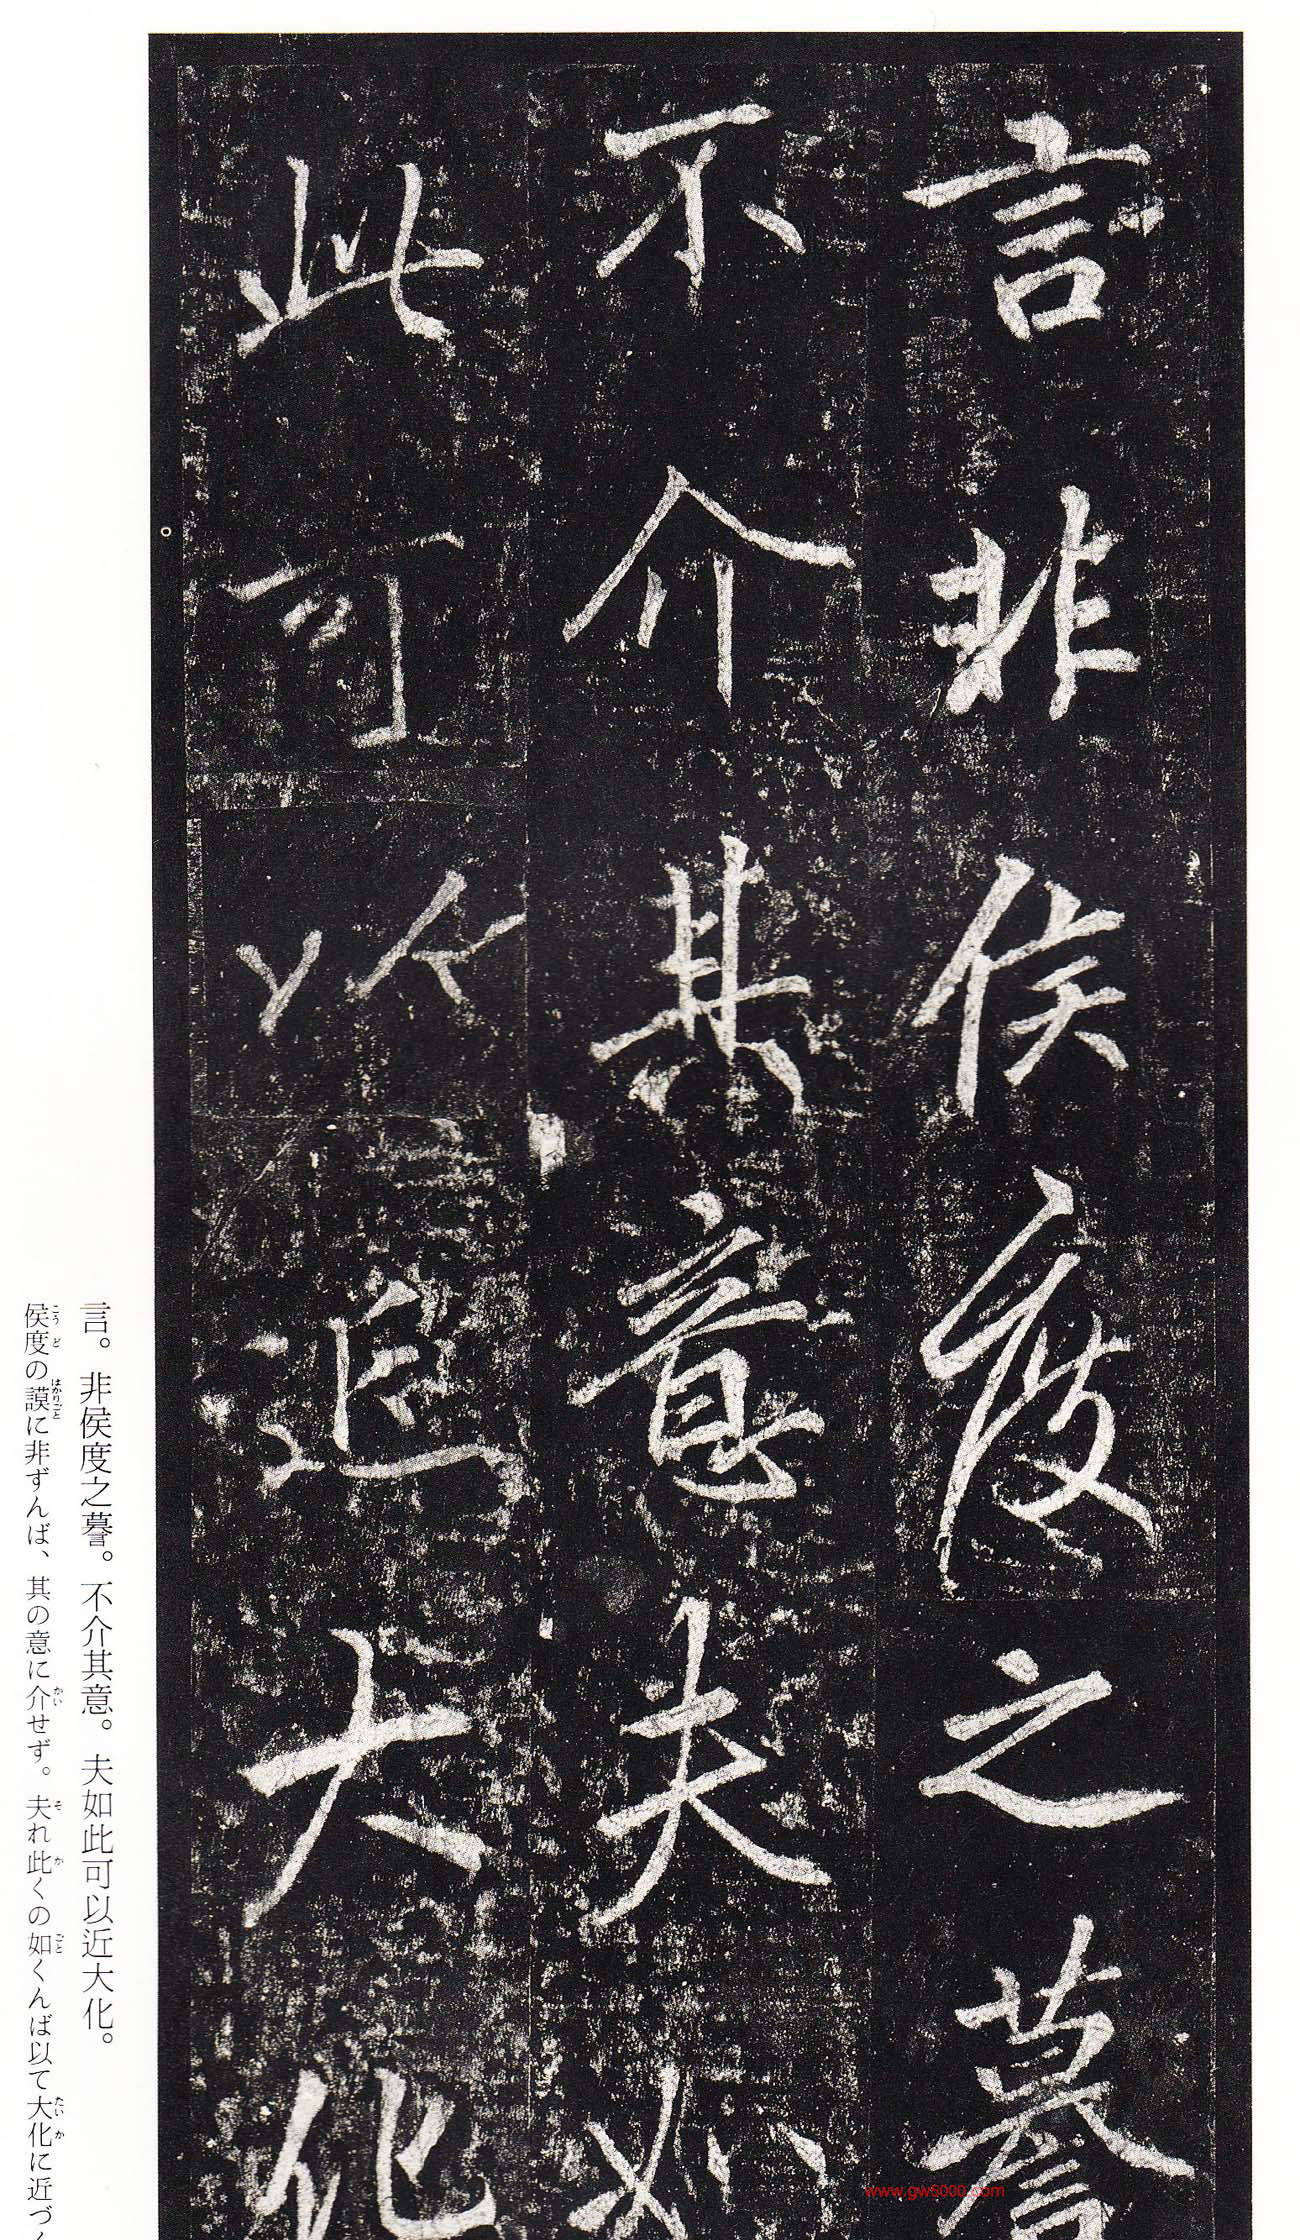 言非侯度之謩
不介其意夫如
此可以近大化
言。非侯度之謩。不介其意。夫如此可以近大化。
侯度の謨に非ずんば、其の意に介せず。夫れ此くの如くんば以て大化に近づく
こうど はかりごと かい そ か ごと たいか
www.gw5000.com